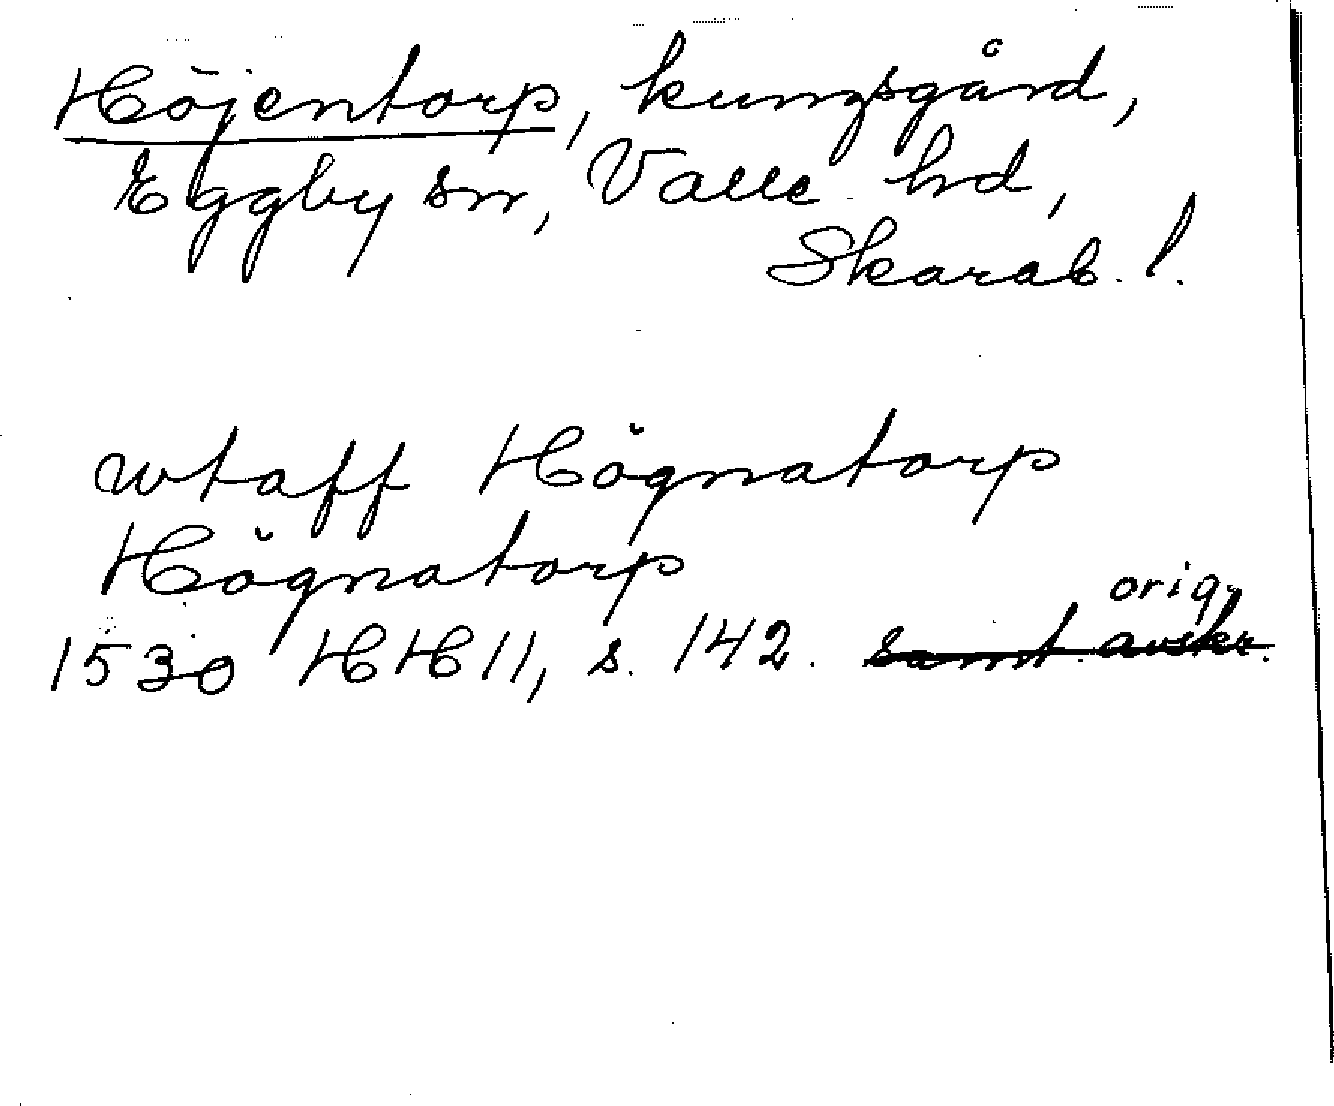 Höjentorp, kungsgård,
Eggby sn, Valle hd,
Skarab. l.
wtaff Högnatorp
Högnatorp
orig.
1530 HH 11, s. 142. samt. avskr.